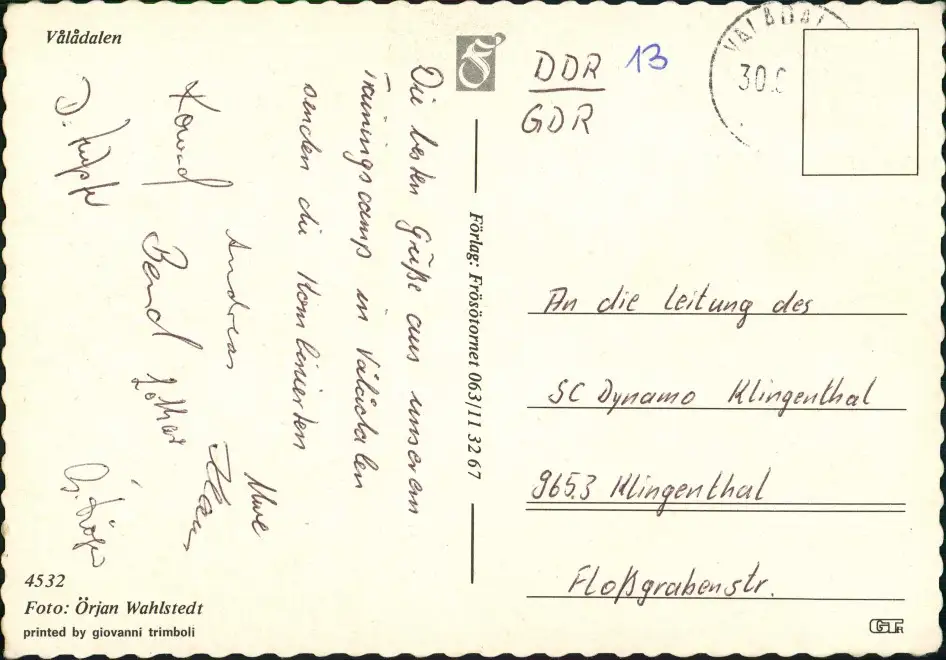 Vålådalen
Die besten Grüße aus unserem
Trainingscamp in Vålådalen
senden die Kombinierten
Andreas
Uwe
Konrad
Bernd
Lothar
D.
G.
Förlag: Frösötornet 063/11 32 67
DDR
13
GDR
VÅLÅDAL
30.
An die Leitung des
SC Dynamo Klingenthal
9653 Klingenthal
Floßgrabenstr.
4532
Foto: Örjan Wahlstedt
printed by giovanni trimboli
GTR